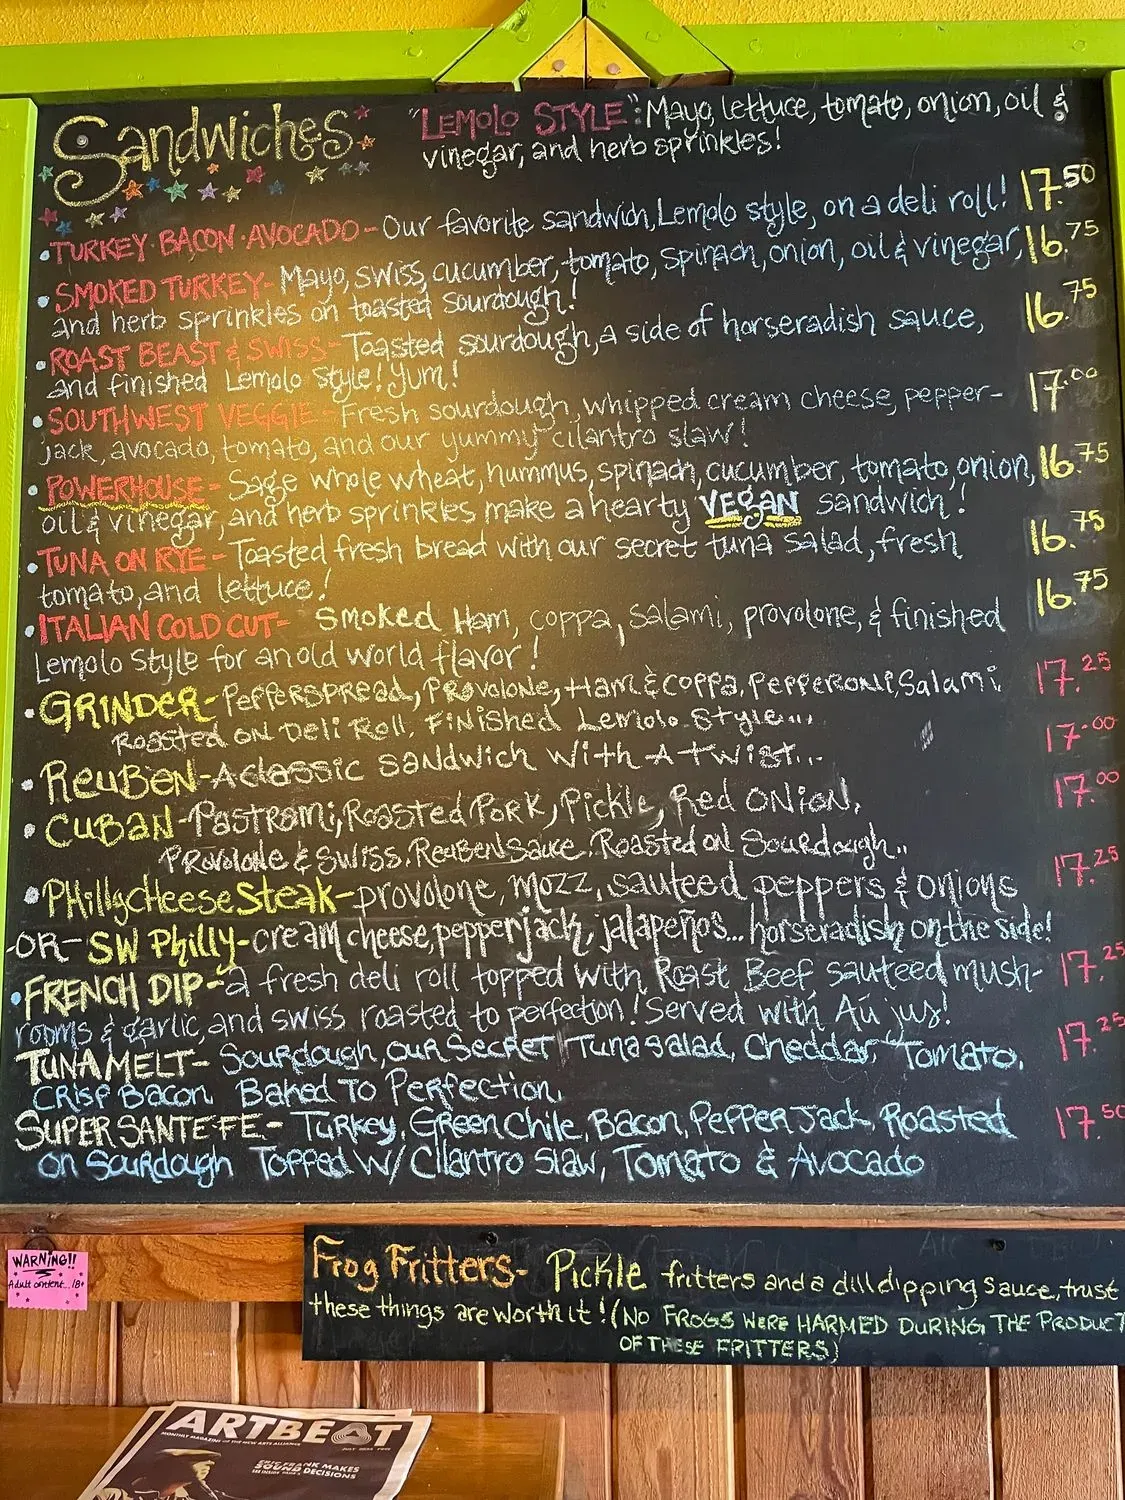 Sandwiches
"LEMOLO STYLE": Mayo, lettuce, tomato, onion, oil &
vinegar, and herb sprinkles!
• TURKEY·BACON·AVOCADO - Our favorite sandwich, Lemolo style, on a deli roll! 17.50
• SMOKED TURKEY - Mayo, swiss, cucumber, tomato, spinach, onion, oil & vinegar, 16.75
and herb sprinkles on toasted sourdough!
• ROAST BEAST & SWISS - Toasted sourdough, a side of horseradish sauce, 16.75
and finished Lemolo Style! Yum!
• SOUTHWEST VEGGIE - Fresh sourdough, whipped cream cheese, pepper- 17.00
jack, avocado, tomato, and our yummy cilantro slaw!
• POWERHOUSE - Sage whole wheat, hummus, spinach, cucumber, tomato, onion, 16.75
oil & vinegar, and herb sprinkles make a hearty VEgAN sandwich!
• TUNA ON RYE - Toasted fresh bread with our secret tuna salad, fresh 16.75
tomato, and lettuce!
• ITALIAN COLD CUT - Smoked Ham, coppa, Salami, provolone, & finished 16.75
Lemolo Style for an old world flavor!
• GRINDER - PEPPERSPREAD, PROVOLONE, HAM & COPPA, PEPPERONI, Salami 17.25
ROASTED ON DELI ROLL. FINISHED LEMOLO STYLE...
• REUBEN - A classic sandwich with A twist... 17.00
• CUBAN - Pastrami, Roasted Pork, Pickle, Red ONION, 17.00
PROVOLONE & SWISS. REUBEN SAUCE. ROASTED ON SOURDOUGH..
• PHillycHeese Steak - provolone, mozz, sauteed peppers & onions 17.25
-OR- SW Philly - cream cheese, pepperjack, jalapeños... horseradish on the side!
• FRENCH DIP - a fresh deli roll topped with Roast Beef sauteed mush- 17.25
rooms & garlic, and swiss roasted to perfection! Served with Aú jus!
TUNA MELT - Sourdough, our Secret Tuna Salad, Cheddar, Tomato, 17.25
CRISP BACON. BAKED TO PERFECTION.
SUPER SANTE FE - TURKEY, GREEN CHILE, BACON, PEPPER JACK. ROASTED 17.50
on Sourdough Topped w/ Cilantro Slaw, Tomato & Avocado
Frog Fritters - Pickle fritters and a dill dipping sauce, trust
these things are worth it! (NO FROGS WERE HARMED DURING THE PRODUCT
OF THESE FRITTERS)
WARNING!!
Adult content...18+
ARTBEAT
MONTHLY MAGAZINE OF THE NEW ARTS ALLIANCE
JULY 2024 FREE
ERIC FRANK MAKES
SOUND DECISIONS